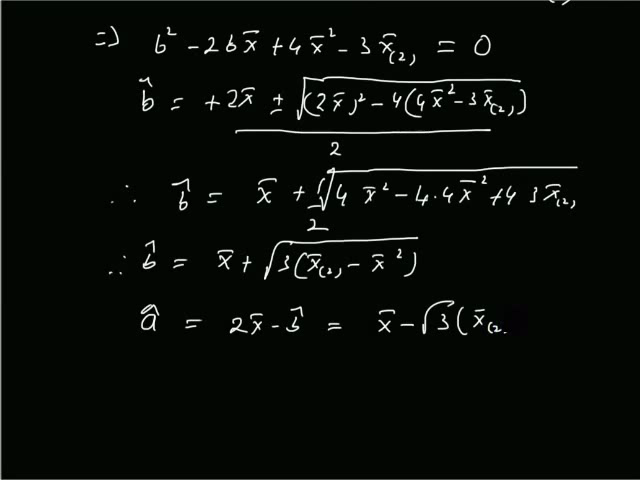 =) b² - 2b x̄ + 4x̄² - 3x̄₍₂₎ = 0
b̂ = + 2x̄ ± √((2x̄)² - 4(4x̄² - 3x̄₍₂₎)) / 2
∴ b̂ = x̄ + 1/2 √(4 x̄² - 4·4x̄² + 4 3 x̄₍₂₎
∴ b̂ = x̄ + √(3(x̄₍₂₎ - x̄²))
â = 2x̄ - b̂ = x̄ - √3(x̄₍₂